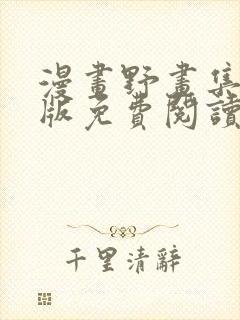 漫畫野畫集
版免費閱讀
千里清辭